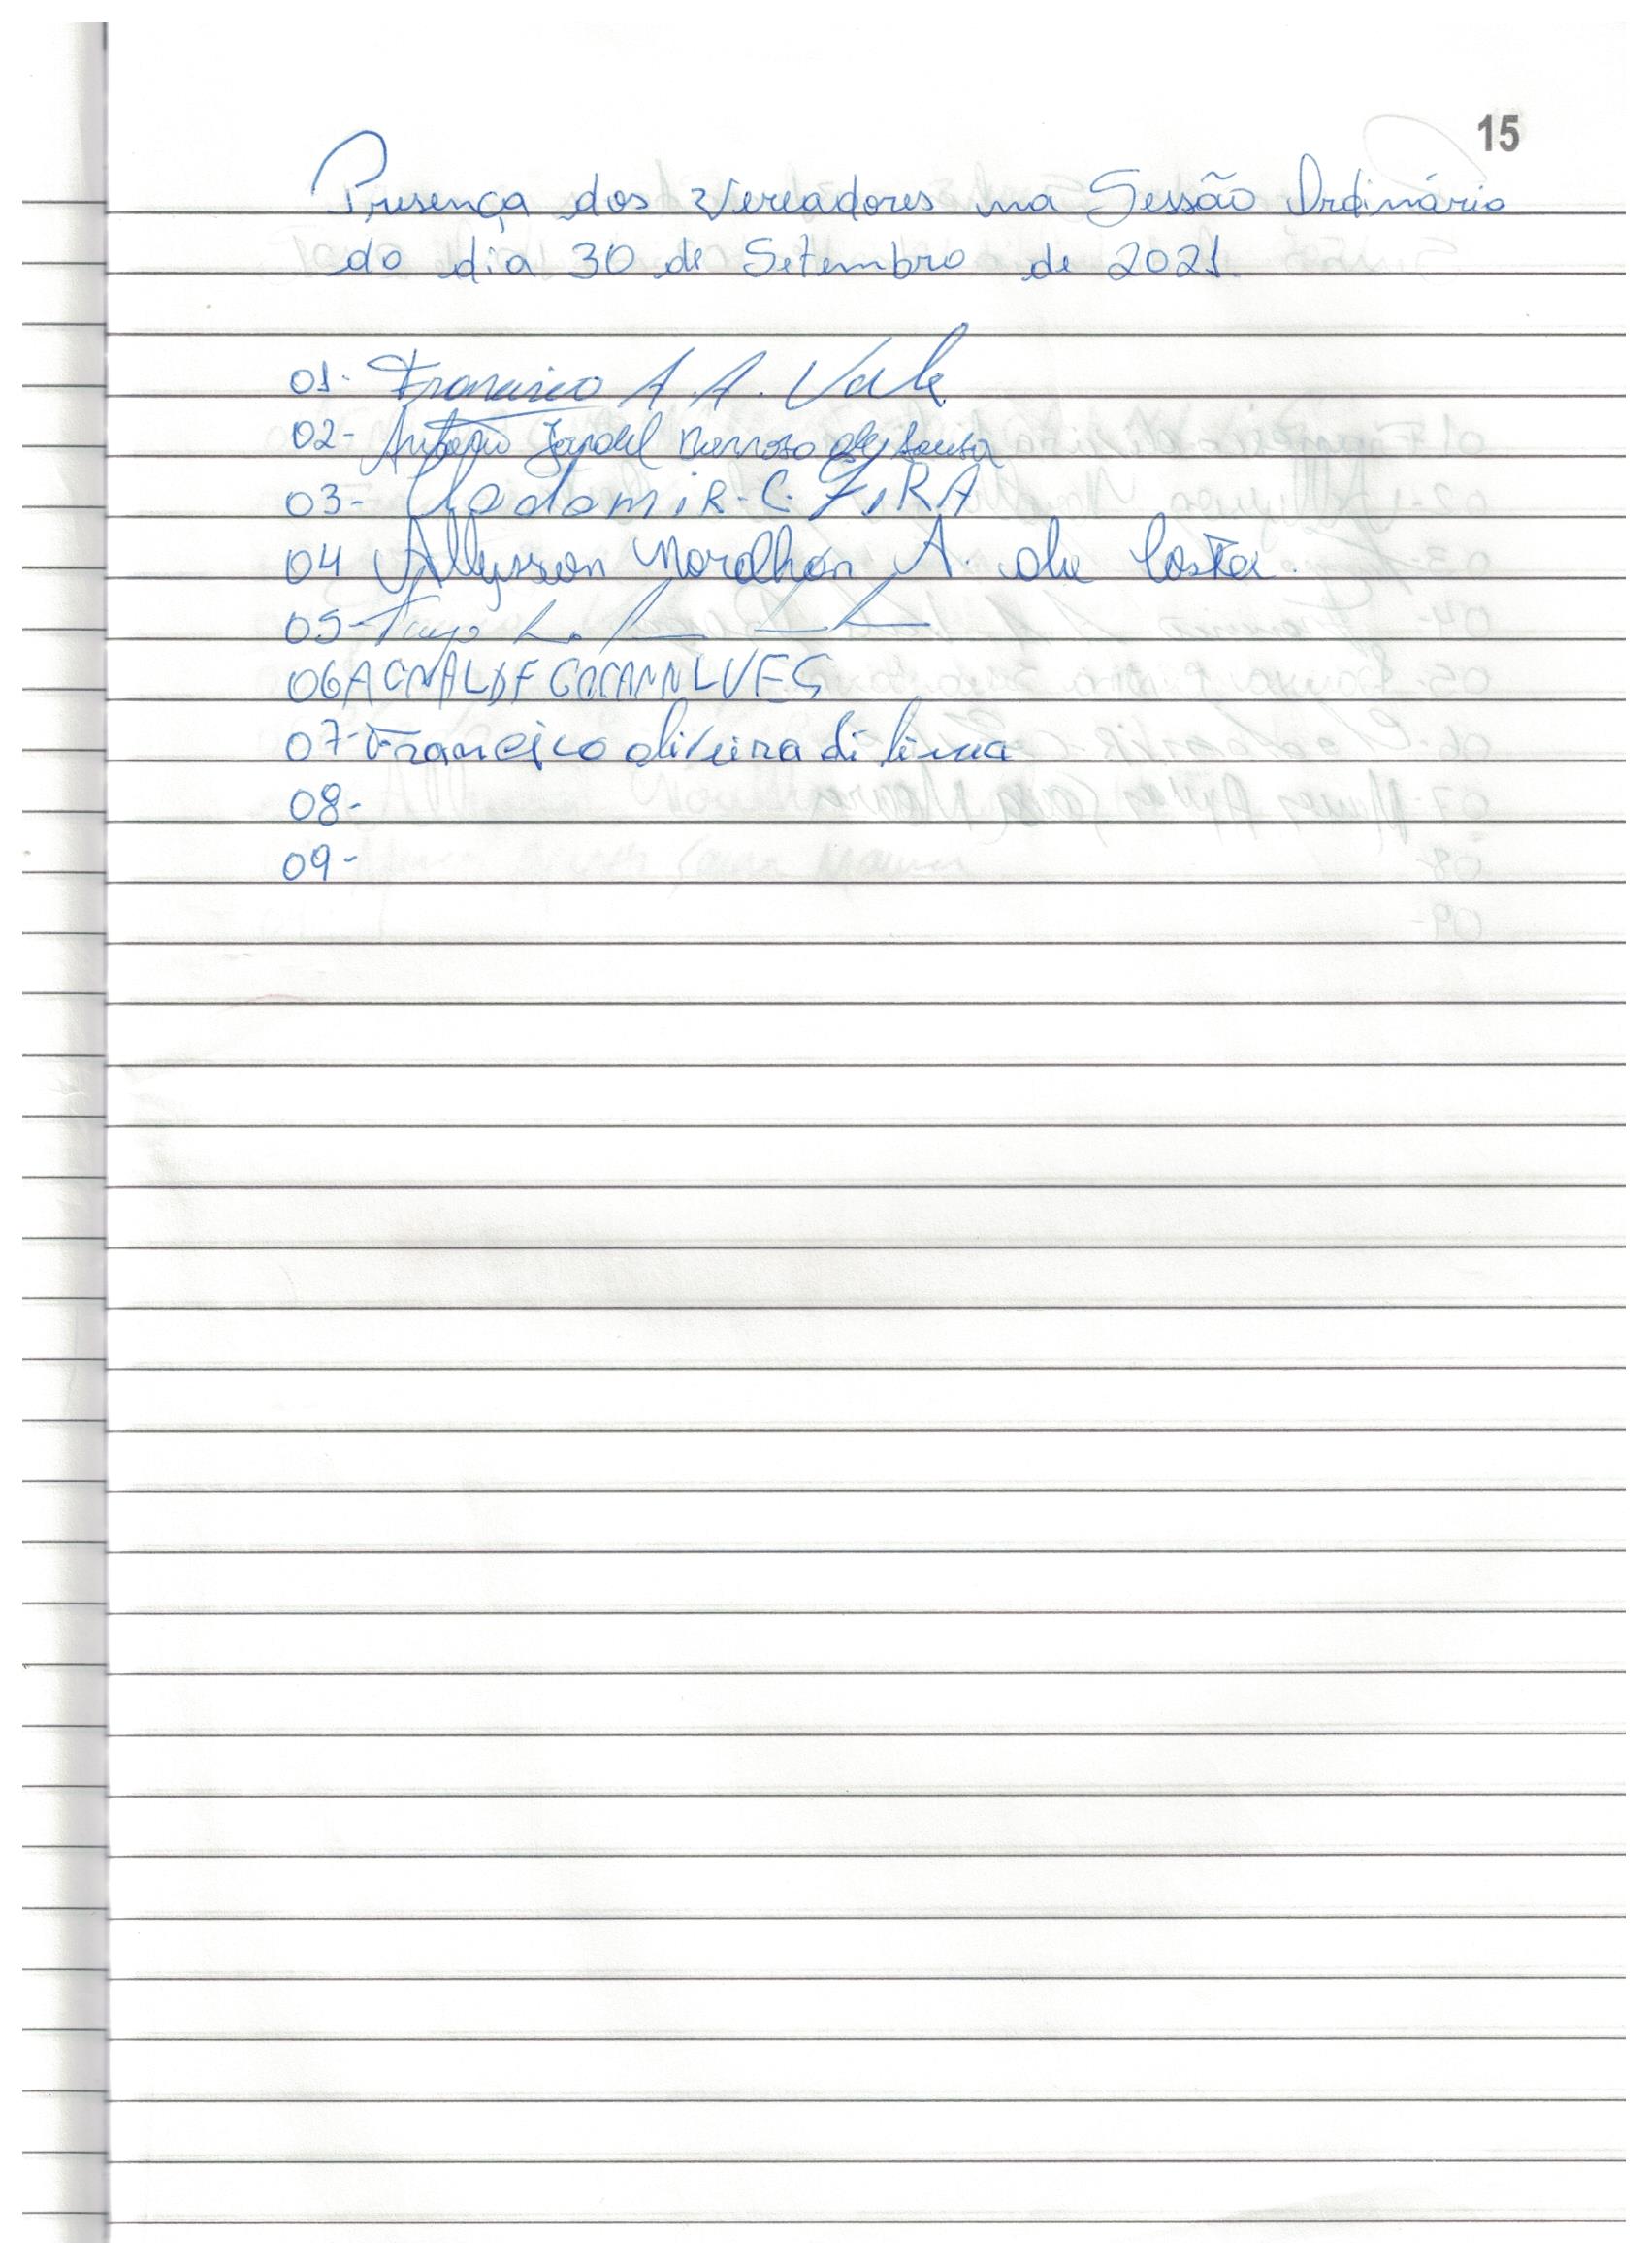 15
Presença dos Vereadores na Sessão Ordinário
do dia 30 de Setembro de 2021
01- Francisco A. A. Vale
02- Antonio Jardel Barroso de Sousa
03- Clodomir. C. LIRA
04 Allysson Maralhon A. de Costa.
05-
06
07- Francisco oliveira di lima
08-
09-